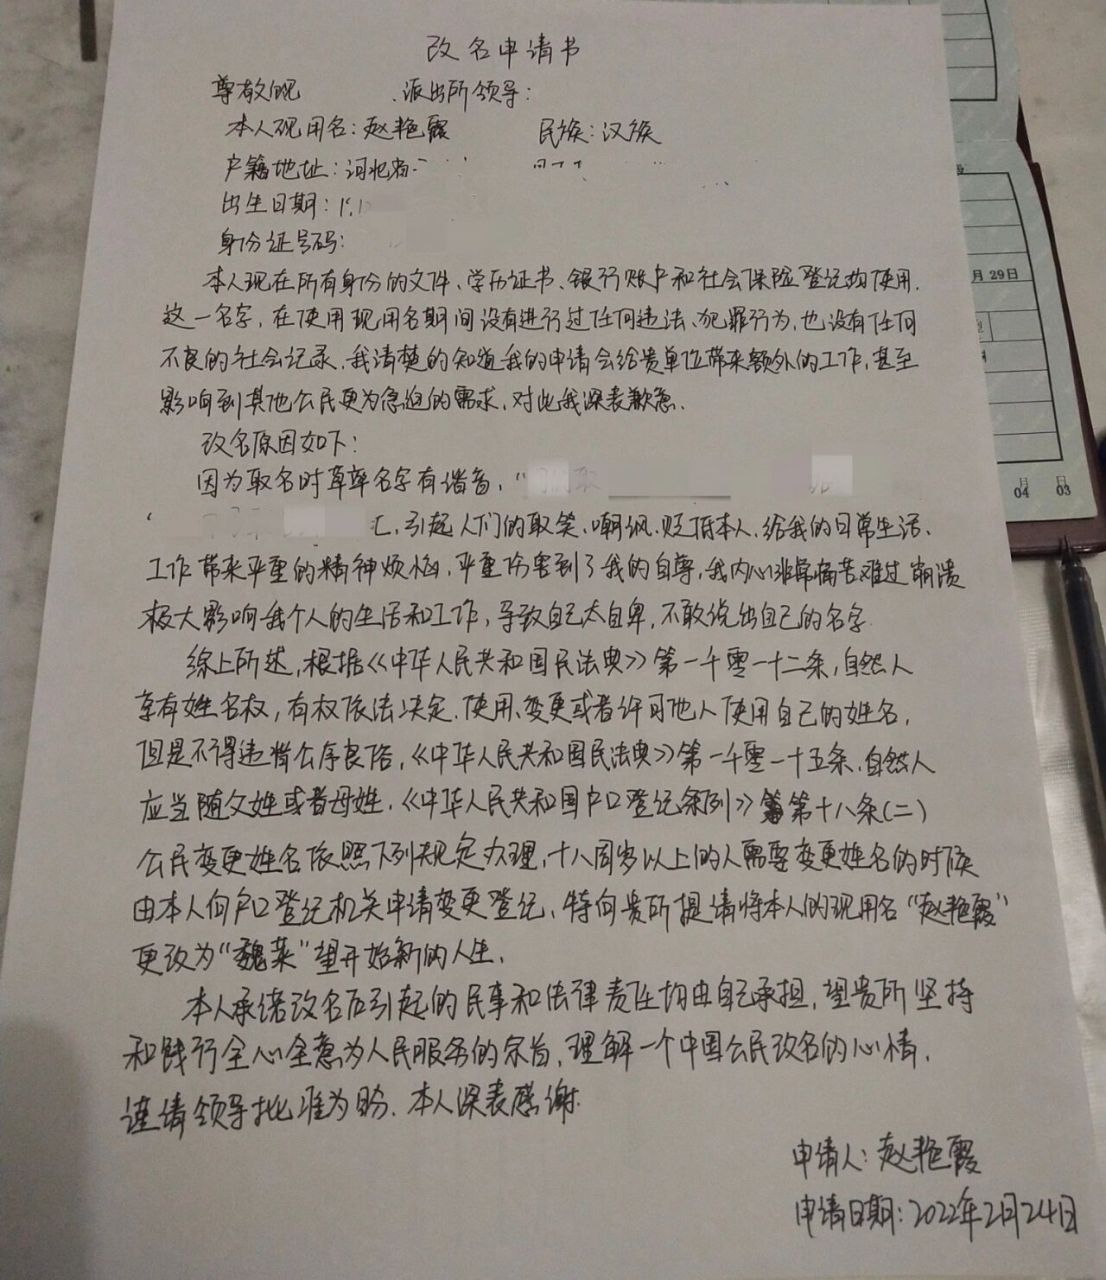 改名申请书
尊敬的 派出所领导：
本人现用名：赵艳霞 民族：汉族
户籍地址：河北省
出生日期：19
身份证号码：
本人现在所有身份的文件、学历证书、银行账户和社会保险登记均使用
这一名字，在使用现用名期间没有进行过任何违法、犯罪行为，也没有任何
不良的社会记录，我清楚的知道我的申请会给贵单位带来额外的工作，甚至
影响到其他公民更为急迫的需求，对此我深表歉意。
改名原因如下：
因为取名时草率名字有谐音，“
，引起人们的取笑、嘲讽、贬低本人，给我的日常生活、
工作带来严重的精神烦恼，严重伤害到了我的自尊，我内心非常痛苦难过崩溃
极大影响我个人的生活和工作，导致自己太自卑，不敢说出自己的名字
综上所述，根据《中华人民共和国民法典》第一千零一十二条，自然人
享有姓名权，有权依法决定、使用、变更或者许可他人使用自己的姓名，
但是不得违背公序良俗，《中华人民共和国民法典》第一千零一十五条，自然人
应当随父姓或者母姓，《中华人民共和国户口登记条例》第十八条（二）
公民变更姓名依照下列规定办理，十八周岁以上的人需要变更姓名的时候
由本人向户口登记机关申请变更登记，特向贵所提请将本人的现用名“赵艳霞”
更改为“魏莱”望开始新的人生，
本人承诺改名后引起的民事和法律责任均由自己承担，望贵所坚持
和践行全心全意为人民服务的宗旨，理解一个中国公民改名的心情，
谨请领导批准为盼、本人深表感谢.
申请人：赵艳霞
申请日期：2022年2月24日
月29日
月 月
04 03